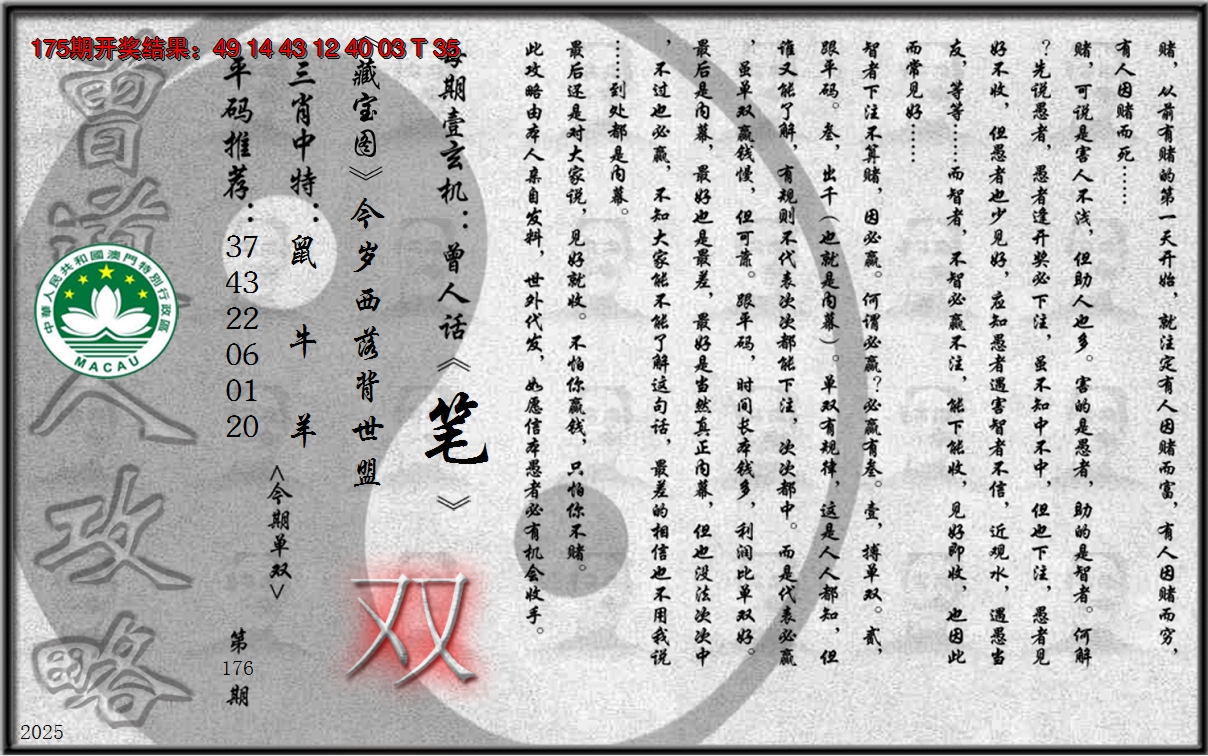 175期开奖结果：49 14 43 12 40 03 T 35
赌，从前有赌的第一天开始，就注定有人因赌而富，有人因赌而穷，
有人因赌而死……
赌，可说是害人不浅，但助人也多。害的是愚者，助的是智者。何解
？先说愚者，愚者逢开奖必下注，虽不知中不中，但也下注，愚者见
好不收，但愚者也少见好，应知愚者遇害智者不信，近观水，遇愚当
友，等等……而智者，不智必赢不注，能下能收，见好即收，也因此
而常见好……
智者下注不算赌，因必赢。何谓必赢？必赢有叁。壹，搏单双。贰，
跟平码。叁，出千（也就是内幕）。单双有规律，这是人人都知，但
谁又能了解，有规则不代表次次都能下注，次次都中。而是代表必赢
，虽单双赢钱慢，但可靠。跟平码，时间长本钱多，利润比单双好。
最后是内幕，最好也是最差，最好是当然真正内幕，但也没法次次中
，不过也必赢，不知大家能不能了解这句话，最差的相信也不用我说
……到处都是内幕。
最后还是对大家说，见好就收。不怕你赢钱，只怕你不赌。
此攻略由本人亲自发料，世外代发，如愿信本愚者必有机会收手。
每期壹玄机：曾人话《笔》
《藏宝图》今岁西落背世盟
双
三肖中特：鼠 牛 羊
<今期单双>
平码推荐：37 43 22 06 01 20
第176期
曾道人攻略
中華人民共和國澳門特別行政區
MACAU
2025